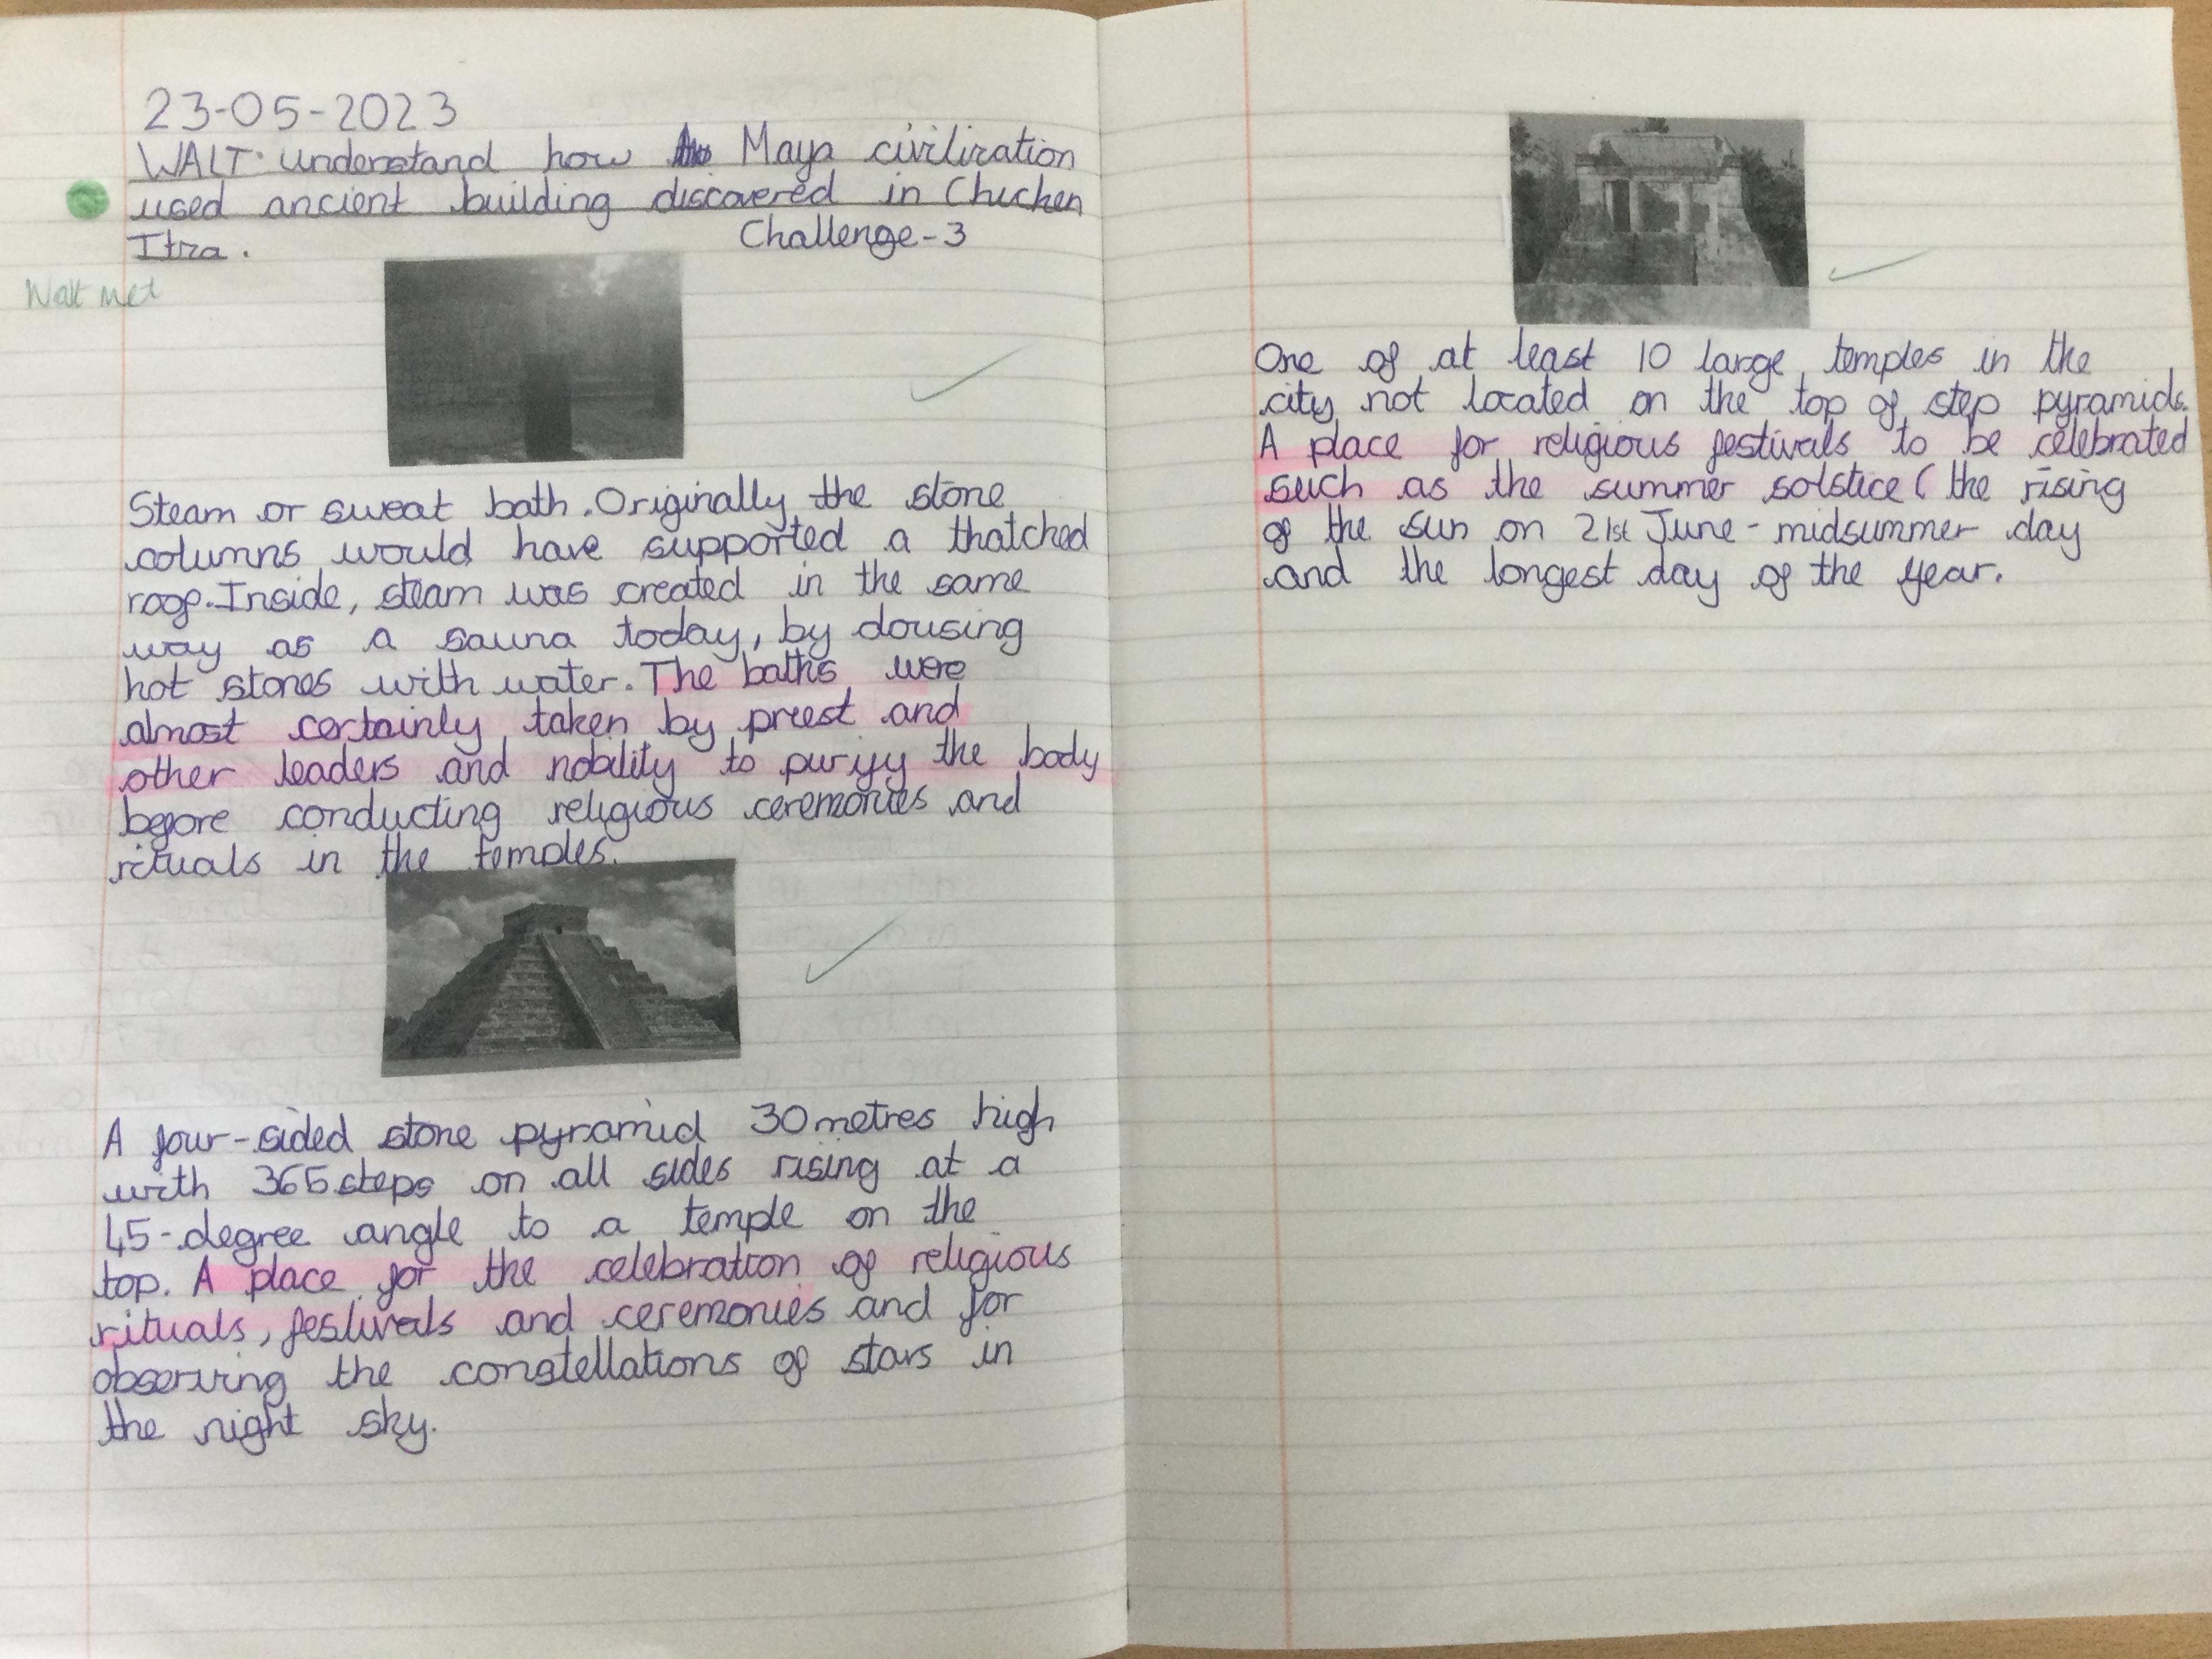 23-05-2023
WALT: understand how Maya civilization
used ancient building discovered in Chichen
Itza.
Challenge-3
Walt met
Steam or sweat bath. Originally the stone
columns would have supported a thatched
roof. Inside, steam was created in the same
way as a sauna today, by dousing
hot stones with water. The baths were
almost certainly taken by preest and
other leaders and nobility to purify the body
before conducting religious ceremonies and
rituals in the temples.
A four-sided stone pyramid 30metres high
with 365 steps on all sides rising at a
45-degree angle to a temple on the
top. A place for the celebration of religious
rituals, festivals and ceremonies and for
observing the constellations of stars in
the night sky.
One of at least 10 large temples in the
city not located on the top of step pyramids.
A place for religious festivals to be celebrated
such as the summer solstice ( the rising
of the sun on 21st June - midsummer day
and the longest day of the year.